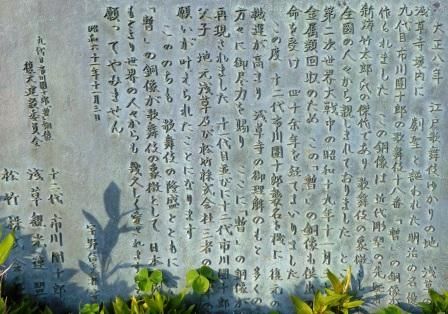 大正八年 江戸歌舞伎ゆかりの地 浅草の
浅草寺境内に 「劇聖」と謳われた明治の名優
九代目市川團十郎の歌舞伎十八番「暫」の銅像が
作られました この銅像は近代彫塑の先駆者
新海竹太郎氏の傑作であり 歌舞伎の象徴として
全国の人々から親しまれておりました ところが
第二次世界大戦中の昭和十九年十一月
金属類回収のため この「暫」の銅像も供出の
命を受け 四十余年を経てまいりました
この度 十二代市川團十郎襲名を機に復元の
機運が高まり 浅草寺の御理解のもと多くの
方々に御尽力を賜り ここに「暫」の
再現されました 十代目並びに十二代市川團十郎
父子 地元浅草及び松竹株式会社三者の
願いが叶えられたことになります
こののちも 歌舞伎の隆盛とともに
「暫」の銅像が歌舞伎の象徴として 日本
もとより世界の人々からも幾久しく愛されますよう
願ってやみません
昭和六十一年十一月三日
九代目市川團十郎「暫」銅像
復元建設委員会
十二代 市川團十郎
浅草観光連盟
松竹株式会社